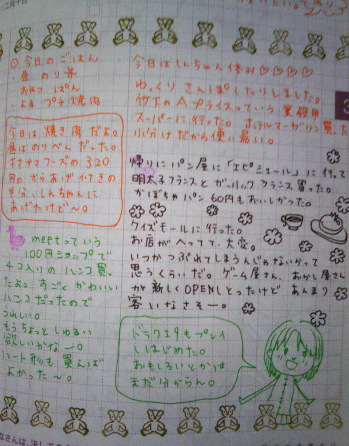 ① 今日のごはん
・昼 のり弁
・おやつ ぱん
・よる プチ焼肉
今日は焼き肉だよ。
昼はのりべんだった。
ササヤマフーズの320
円のからあげ付きの
半分、しんちゃんに
あげたけど〜。
meetっていう
100円ショップで
4コ入りのハンコ買っ
たよ。すごくかわいい
ハンコだったので
うれしい。
もうちょっとしゅるい
欲しいかなー。
ハート形も買えば
よかった〜。
今日はしんちゃん休み♡♡♡♡
ゆっくりさんぽしたりしました。
竹下のAプライスっていう業務用
スーパーに行った。ホテルマーガリン買った
小分けだから使い易い。
帰りにパン屋に「エピシェール」に行って
明太フランスとガーリックフランス買った。
かぼちゃパン60円もおいしかった。
クイズモールに行った。
お店がへってて、大変。
いつかつぶれてしまうんじゃないかって
思うくらいだ。ゲーム屋さん、おかし屋さん
が新しくOPENしとったけど あんまり
客いなさそー。
ドラクエ9もプレイ
しはじめた。
おもしろいとかは
まだ分からん。